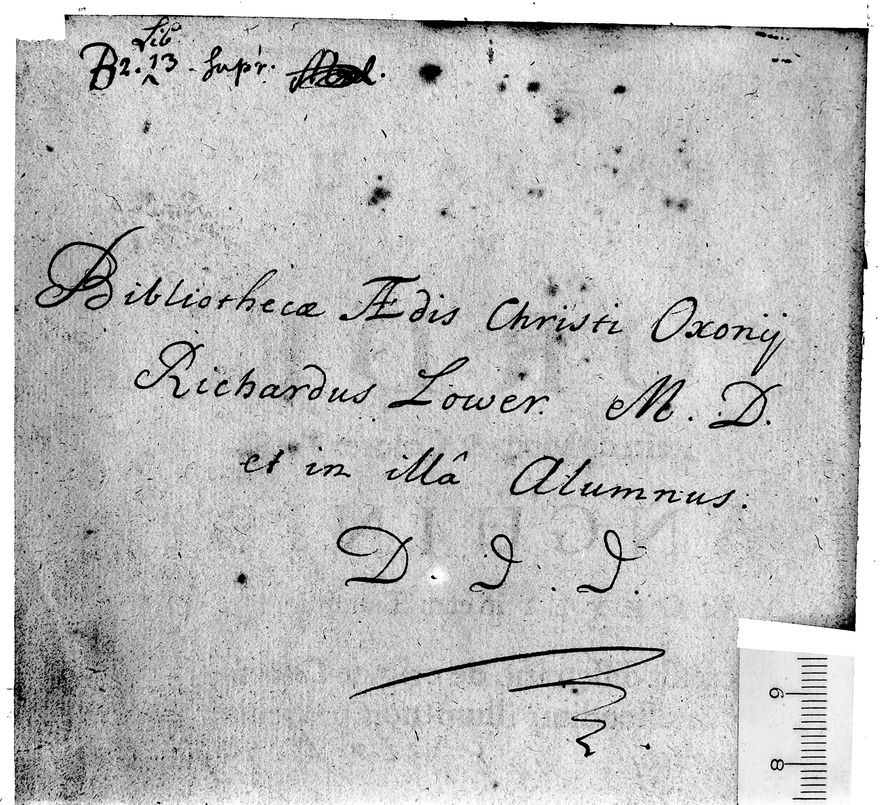 Lib
B2.13. Sup'r.
Bibliothecæ Ædis Christi Oxonij
Richardus Lower. M. D.
et in illâ Alumnus.
D. D. D.
9
8